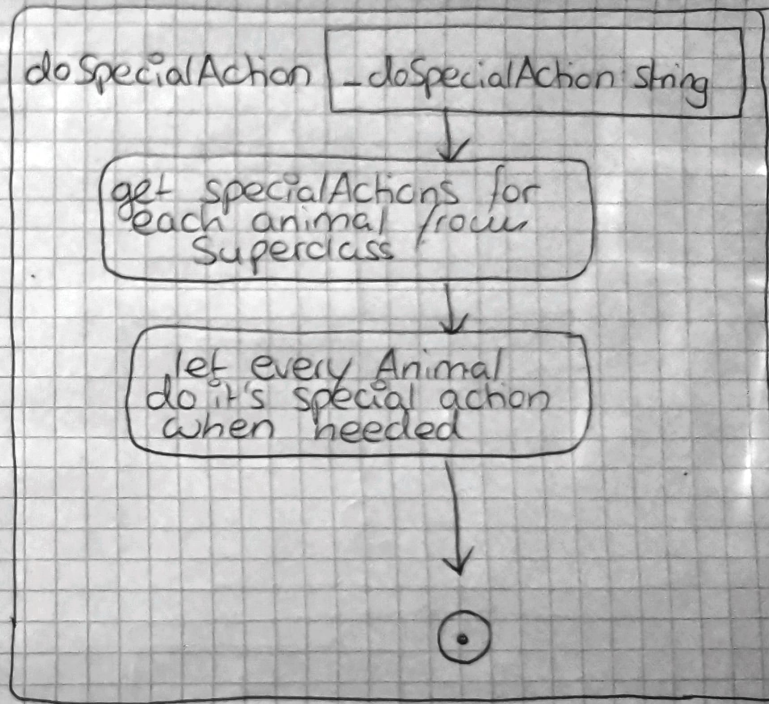 doSpecialAction _doSpecialAction string
get specialActions for
each animal from
Superclass
let every Animal
do it's special action
when needed